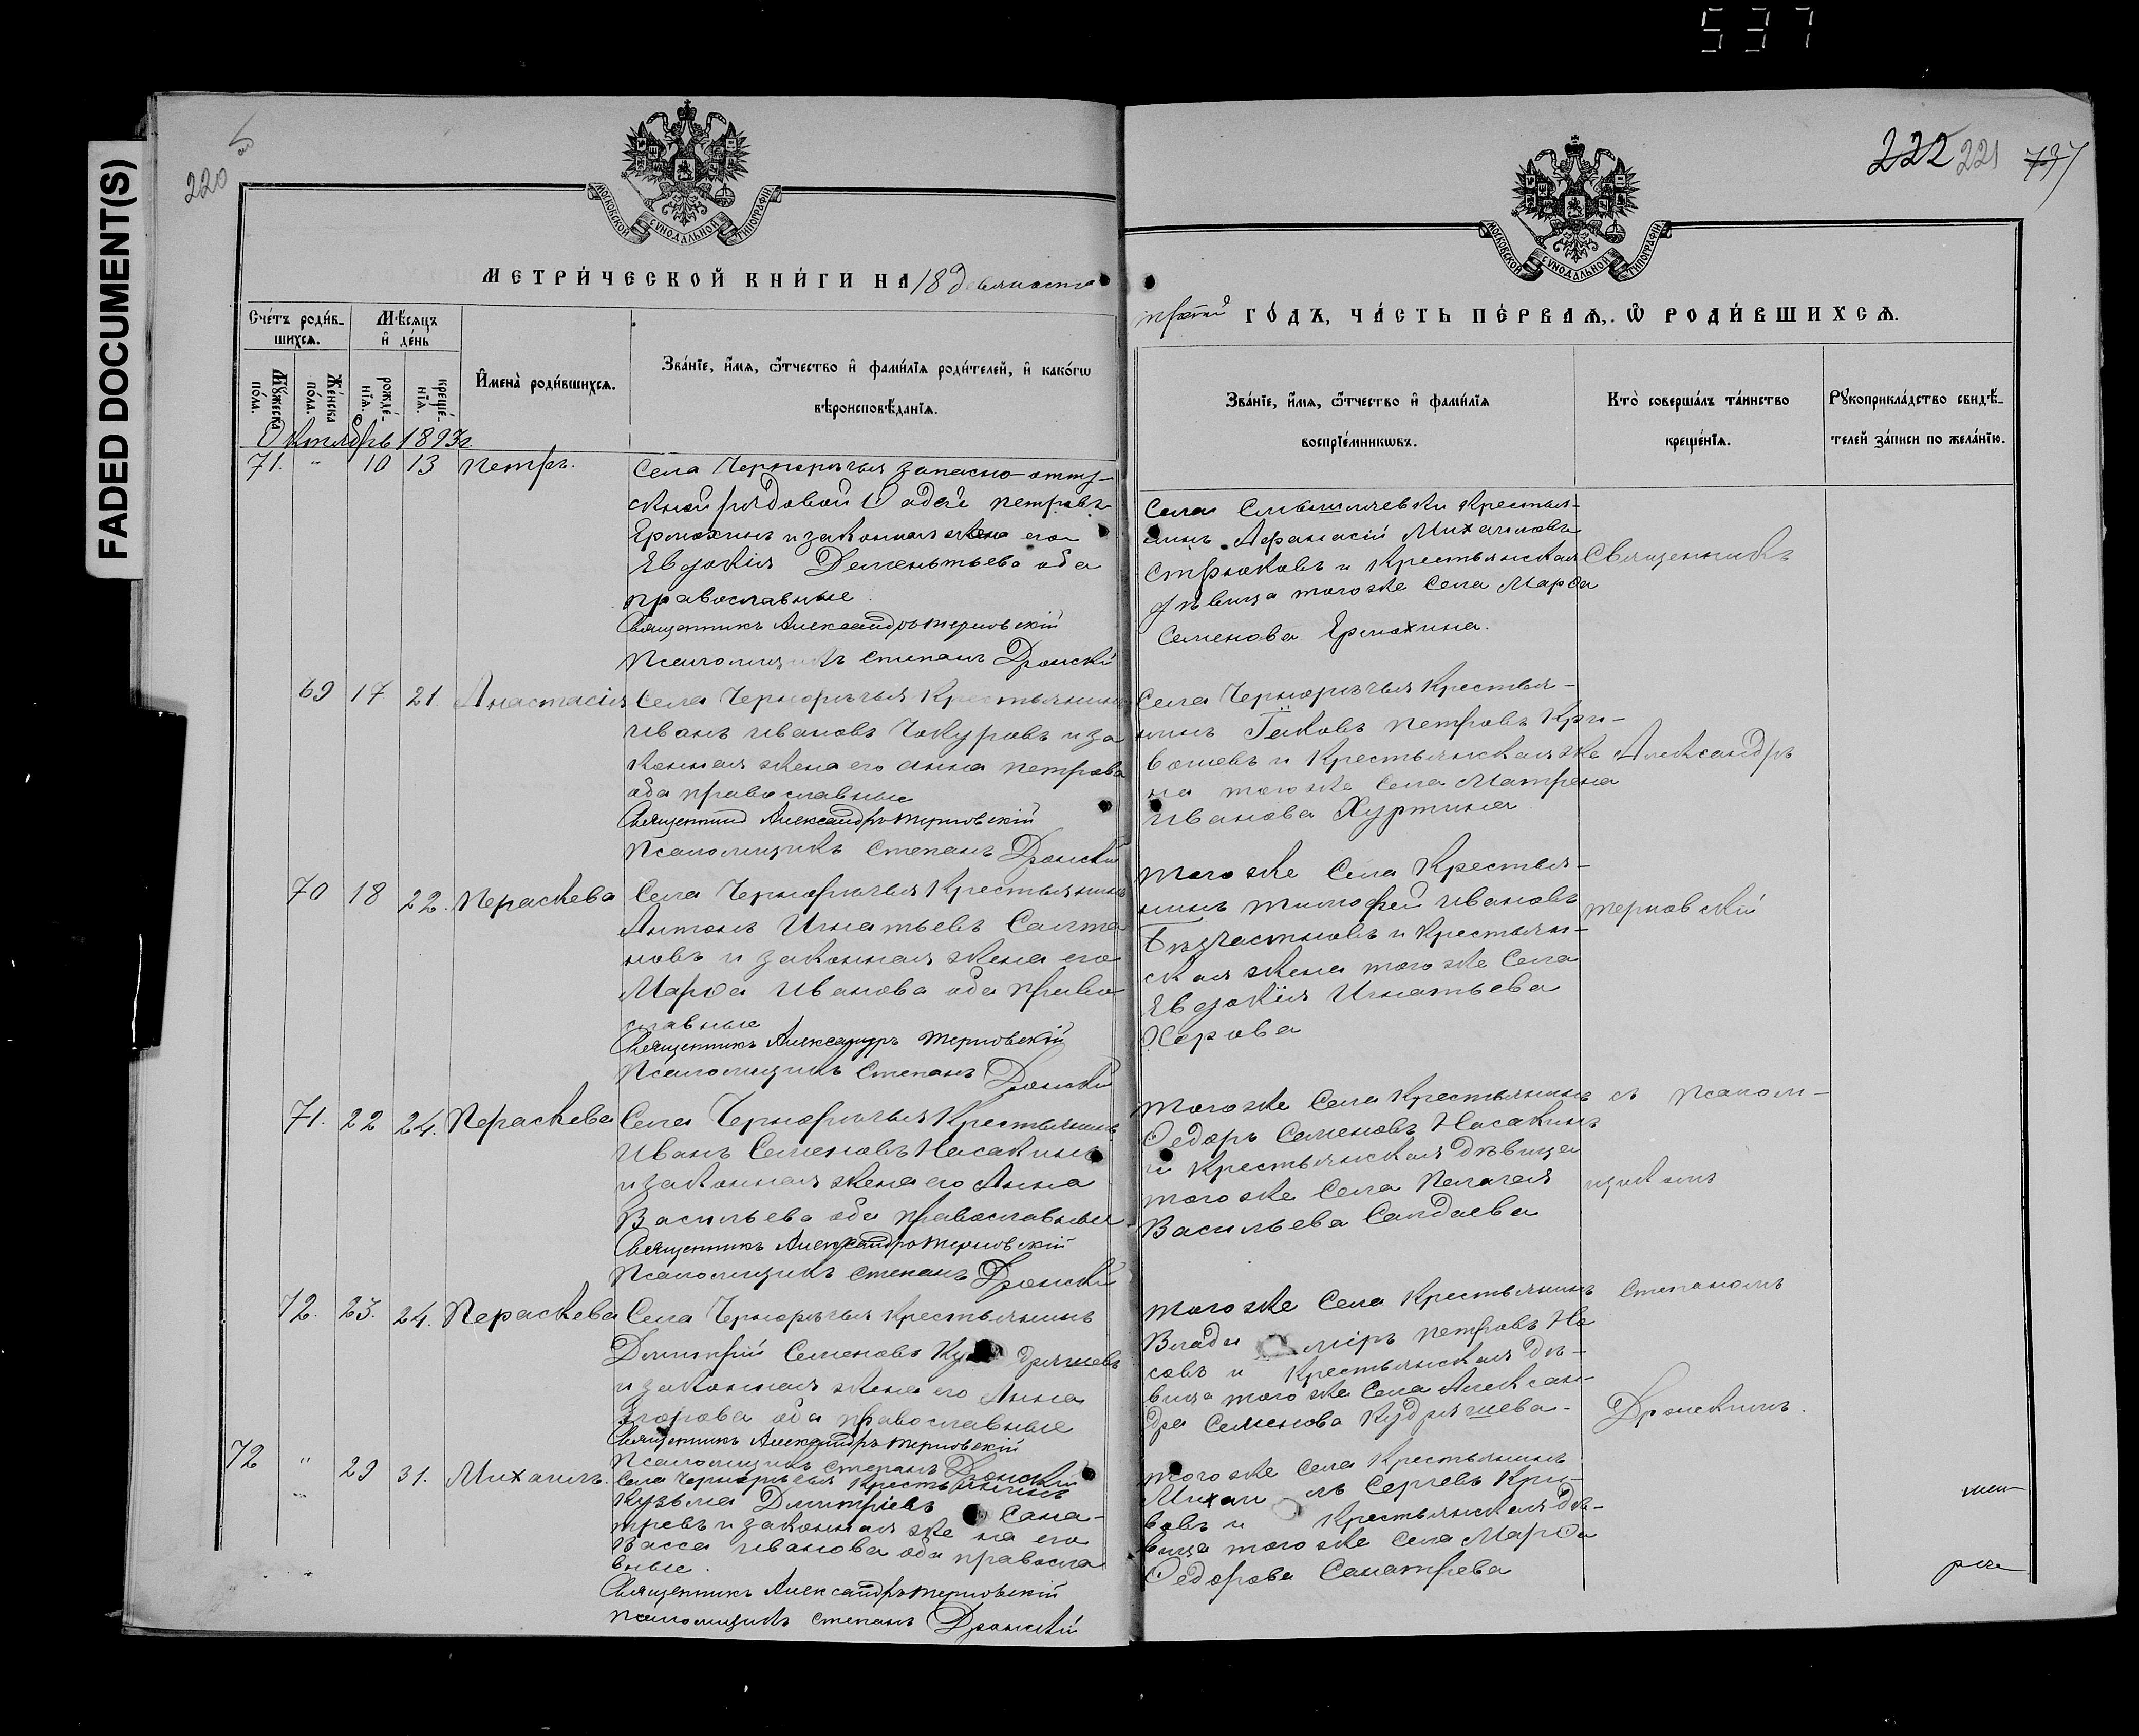 537
FADED DOCUMENT(S)
220
222 221 737
МОСКОВСКОЙ СѴНОДАЛЬНОЙ ТИПОГРАФІИ
МОСКОВСКОЙ СѴНОДАЛЬНОЙ ТИПОГРАФІИ
МЕТРИ́ЧЕСКОЙ КНИ́ГИ НА 18 девяноста
третій ГО́ДЪ, ЧА́СТЬ ПЕ́РВАЯ, Ѡ РОДИ́ВШИХСЯ.
Сче́тъ роди́в-
шихся.
Мѣ́сяцъ
и҆ де́нь
Мꙋжеска
по́ла.
Же́нска
по́ла.
рожде́-
нїя.
креще́-
нїя.
И҆мена̀ роди́вшихся.
Зва́нїе, и҆́мя, ѻ҆́тчество и҆ фами́лїя роди́телей, и҆ како́гѡ
вѣроисповѣ́данїя.
Зва́нїе, и҆́мя, ѻ҆́тчество и҆ фами́лїя
воспрїе́мникѡвъ.
Кто̀ соверша́лъ та́инство
креще́нїя.
Рꙋкоприкла́дство свидѣ́-
телей за́писи по жела́нїю.
Октябрь 1893г.
71. " 10 13 Петръ.
Села Чернорѣчья запасно-отпу-
скной рядовой Ѳадей Петровъ
Ермохинъ и законная жена его
Евдокія Дементьева оба
православные.
Священникъ Александръ Терновскій
Псаломщикъ Степанъ Дронскій
Села Смышляевки крестья-
нинъ Аѳанасій Михайловъ
Стрюковъ и крестьянская
дѣвица того же села Марѳа
Семенова Ермохина.
Священникъ
69 17 21. Анастасія
Села Чернорѣчья крестьянинъ
Иванъ Ивановъ Чокуровъ и за
конная жена его Анна Петрова
оба православные
Священник Александръ Терновскій
Псаломщикъ Степанъ Дронскій
Села Чернорѣчья крестья-
нинъ Іаковъ Петровъ Кри-
вошевъ и крестьянская же
на того же села Матрена
Иванова Хуртина
Александръ
70 18 22. Параскева
Села Чернорѣчья крестьянинъ
Антонъ Игнатьевъ Салта
новъ и законная жена его
Марѳа Иванова оба право
славные
Священникъ Александръ Терновскій
Псаломщикъ Степанъ Дронскій
Того же села крестья-
нинъ Тимофей Ивановъ
Безчастновъ и крестьян-
ская жена того же села
Евдокія Игнатьева
Херова
Терновскій
71. 22 24. Параскева
Села Чернорѣчья крестьянинъ
Иванъ Семеновъ Насакинъ
и законная жена его Анна
Васильева оба православные
Священникъ Александръ Терновскій
Псаломщикъ Степанъ Дронскій
Того же села крестьянинъ
Ѳедоръ Семеновъ Насакинъ
и крестьянская дѣвица
того же села Пелагея
Васильева Салдаева
съ псалом-
щикомъ
72. 23. 24. Параскева
Села Чернорѣчья крестьянинъ
Димитрій Семеновъ Ку дряшевъ
и законная жена его Анна
Егорова оба православные
Священникъ Александръ Терновскій
Псаломщикъ Степанъ Дронскій
Того же села крестьянинъ
Влади миръ Петровъ Но
совъ и крестьянская дѣ-
вица того же села Алексан-
дра Семенова Кудряшева.
Степаномъ
Дронскимъ.
72 " 29 31. Михаилъ.
Села Чернорѣчья крестьянинъ
Кузьма Димитріевъ Сана-
тревъ и законная же на его
Васса Иванова оба правосла
вные.
Священникъ Александръ Терновскій
Псаломщикъ Степанъ Дронскій
Того же села крестьянинъ
Михаи лъ Сергевъ Кри-
вовъ и крестьянская дѣ-
вица того же села Марѳа
Ѳедорова Санатрева